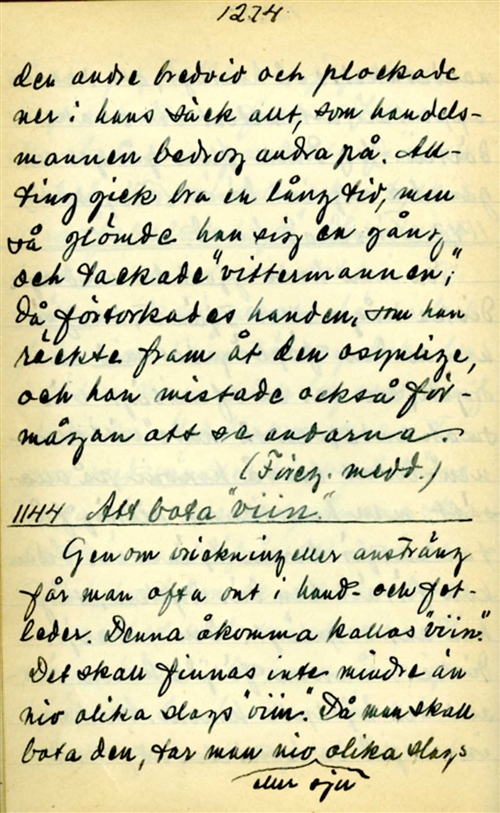 1274
den andre bredvid och plockade
ner i hans säck allt, som handels-
mannen bedrog andra på. All-
ting gick bra en lång tid, men
så glömde han sig en gång
och tackade "vittermannen";
då förtorkades handen, som han
räckte fram åt den osynlige,
och han mistade också för-
mågan att se andarna.
(Föreg. medd.)
1144 Att bota "viin".
Genom vrickning eller ansträng
får man ofta ont i hand- och fot-
leder. Denna åkomma kallas "viin".
Det skall finnas inte mindre än
nio olika slags "viin". Då man skall
bota den, tar man nio olika slags
eller sju